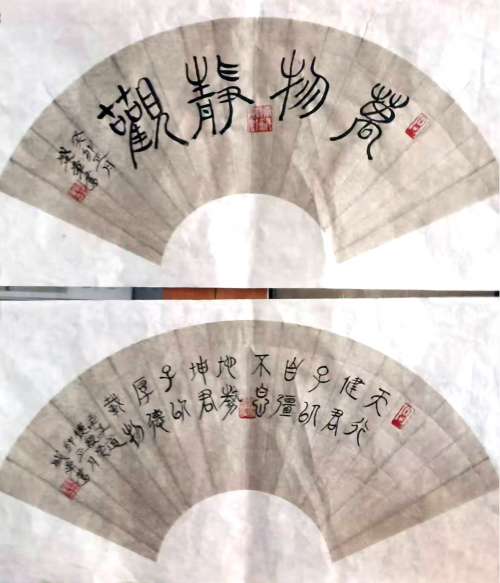 萬物靜觀
天行
健君
子以
自彊
不息
地勢
坤君
子以
厚德
載物